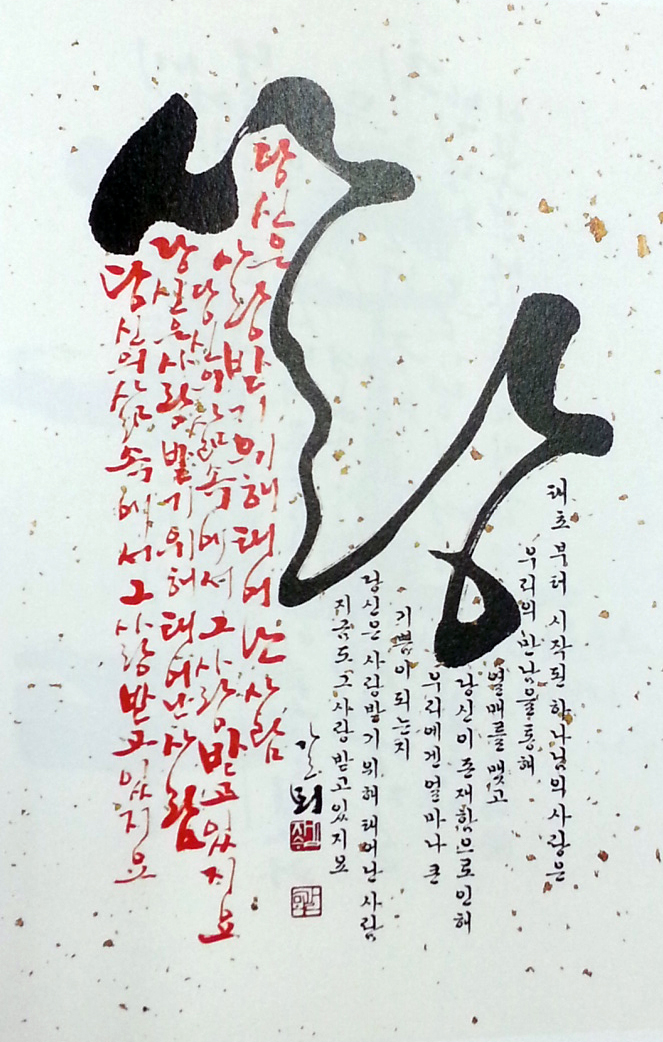 사랑
당신은
사랑받기위해 태어난 사람
당신의 삶 속에서 그 사랑 받고 있지요
당신은 사랑 받기 위해 태어난 사람
당신의 삶 속에서 그 사랑 받고 있지요
태초부터 시작된 하나님의 사랑은
우리의 만남을 통해
열매를 맺고
당신이 존재함으로 인해
우리에겐 얼마나 큰
기쁨이 되는지
당신은 사랑받기 위해 태어난 사람
지금도 그 사랑 받고 있지요